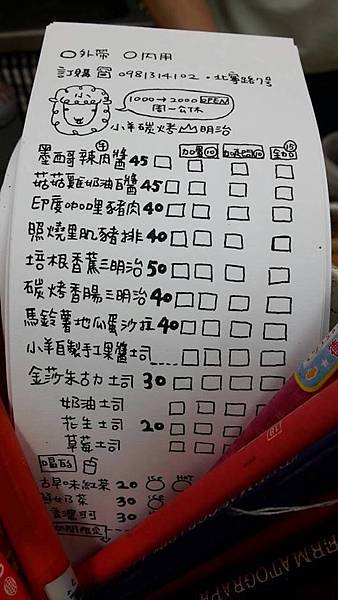 ○外帶 ○內用
訂購 ☎ 0981314102・北寧路7号
小羊
1000→2000 OPEN
周一公休
小羊碳烤山明治
加蛋⑩ 加起司⑩ 全加⑮
墨西哥辣肉醬45 □ □ □ □
菇菇雞奶油醬45 □ □ □ □
印度咖哩豬肉40 □ □ □ □
照燒里肌豬排40 □ □ □ □
培根香蕉三明治50 □ □ □ □
碳烤香腸三明治40 □ □ □ □
馬鈴薯地瓜蛋沙拉40 □ □ □ □
小羊自製手工果醬土司 □ □ □ □
金莎朱古力土司 30 □ □ □ □
奶油土司 □ □ □ □
花生土司 20 □ □ □ □
草莓土司 □ □ □ □
喝的
古早味紅茶 20
鮮奶茶 30
可可 30
DERMATOGRAPH